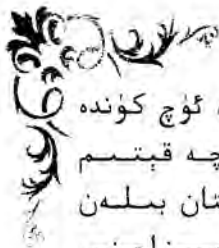 ئۈچ كۈندە
چە قېتىم
تان بىلەن